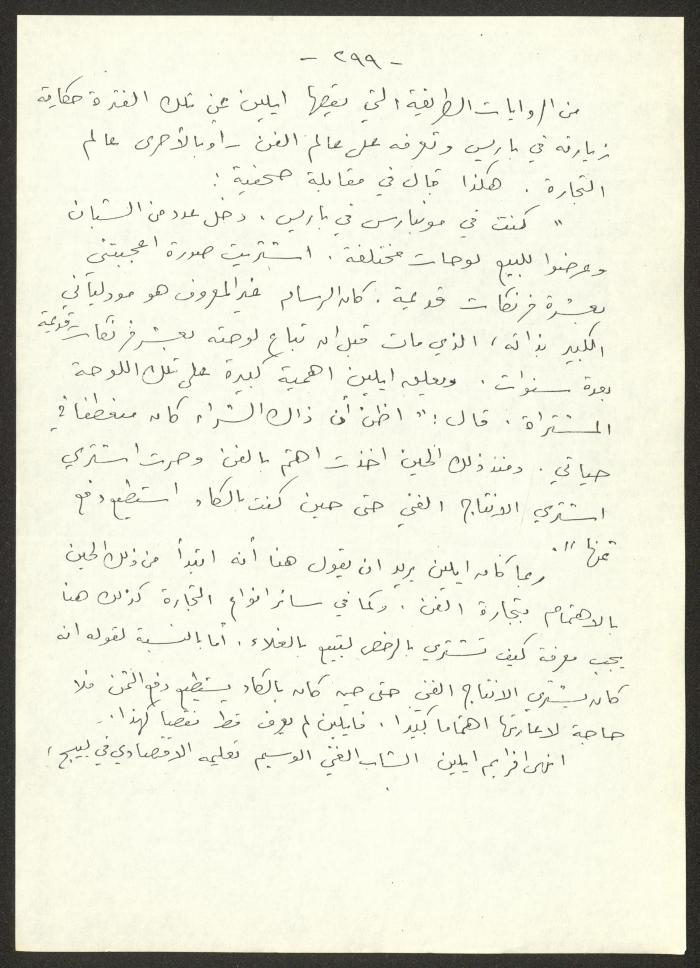 - ٢٩٩ -
من الروايات الطريفة التي يقصها ايلين عن تلك الفترة حكاية
زيارته في باريس وتعرفه على عالم الفن - او بالأحرى عالم
التجارة . هكذا قال في مقابلة صحفية :
" كنت في مونبارس في باريس . دخل عدد من الشبان
وعرضوا للبيع لوحات مختلفة . اشتريت صورة اعجبتني
بعشرة فرنكات قديمة . كان الرسام غير المعروف هو مودلياني
الكبير بذاته ، الذي مات قبل ان تباع لوحته بعشر فرنكات قديمة
بعدة سنوات . ويعلق ايلين اهمية كبيرة على تلك اللوحة
المشتراة . قال : " اظن أن ذاك الشراء كان منعطفا في
حياتي . ومنذ ذلك الحين اخذت اهتم بالفن وصرت اشتري
اشتري الانتاج الفني حتى حين كنت بالكاد استطيع دفع
ثمنها " .
ربما كان ايلين يريد ان يقول هنا أنه ابتدأ من ذلك الحين
بالاهتمام بتجارة الفن . وكما في سائر انواع التجارة كذلك هنا
يجب معرفة كيف تشتري بالرخص لتبيع بالغلاء . أما بالنسبة لقوله انه
كان يشتري الانتاج الفني حتى حين كان بالكاد يستطيع دفع الثمن فلا
حاجة لاعارتها اهتماما كبيرا . فايلين لم يعرف قط نقصا كهذا .
انهى افرايم ايلين الشاب الغني الوسيم تعليمه الاقتصادي في لييج ،